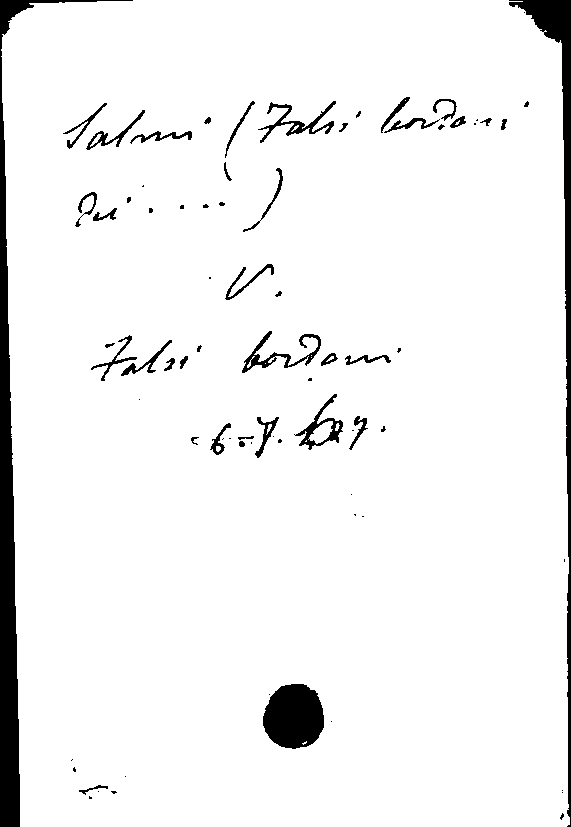 Salmi (Falsi bordoni
dei . ...)
V.
Falsi bordoni